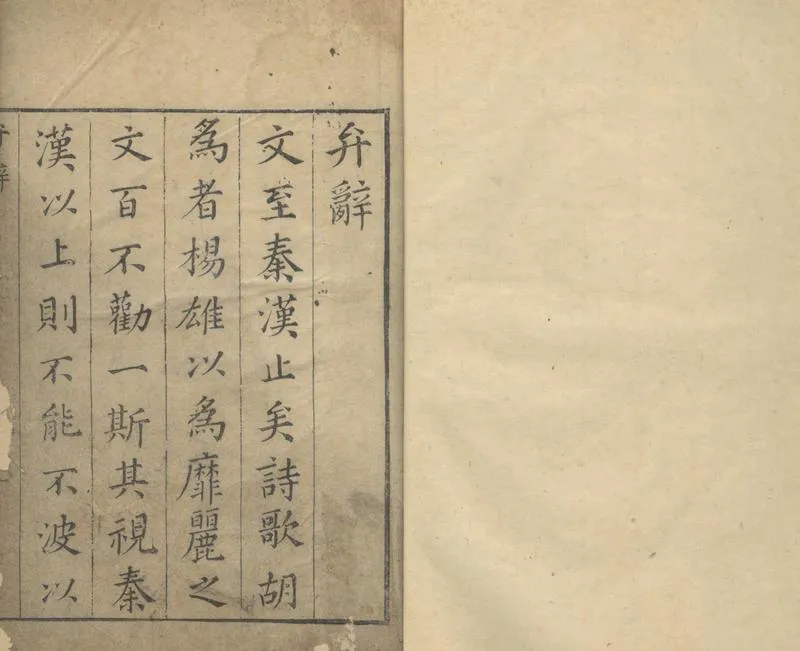 弁辭
文至秦漢止矣詩歌胡
爲者楊雄以爲靡麗之
文百不勸一斯其視秦
漢以上則不能不波以
弁辭